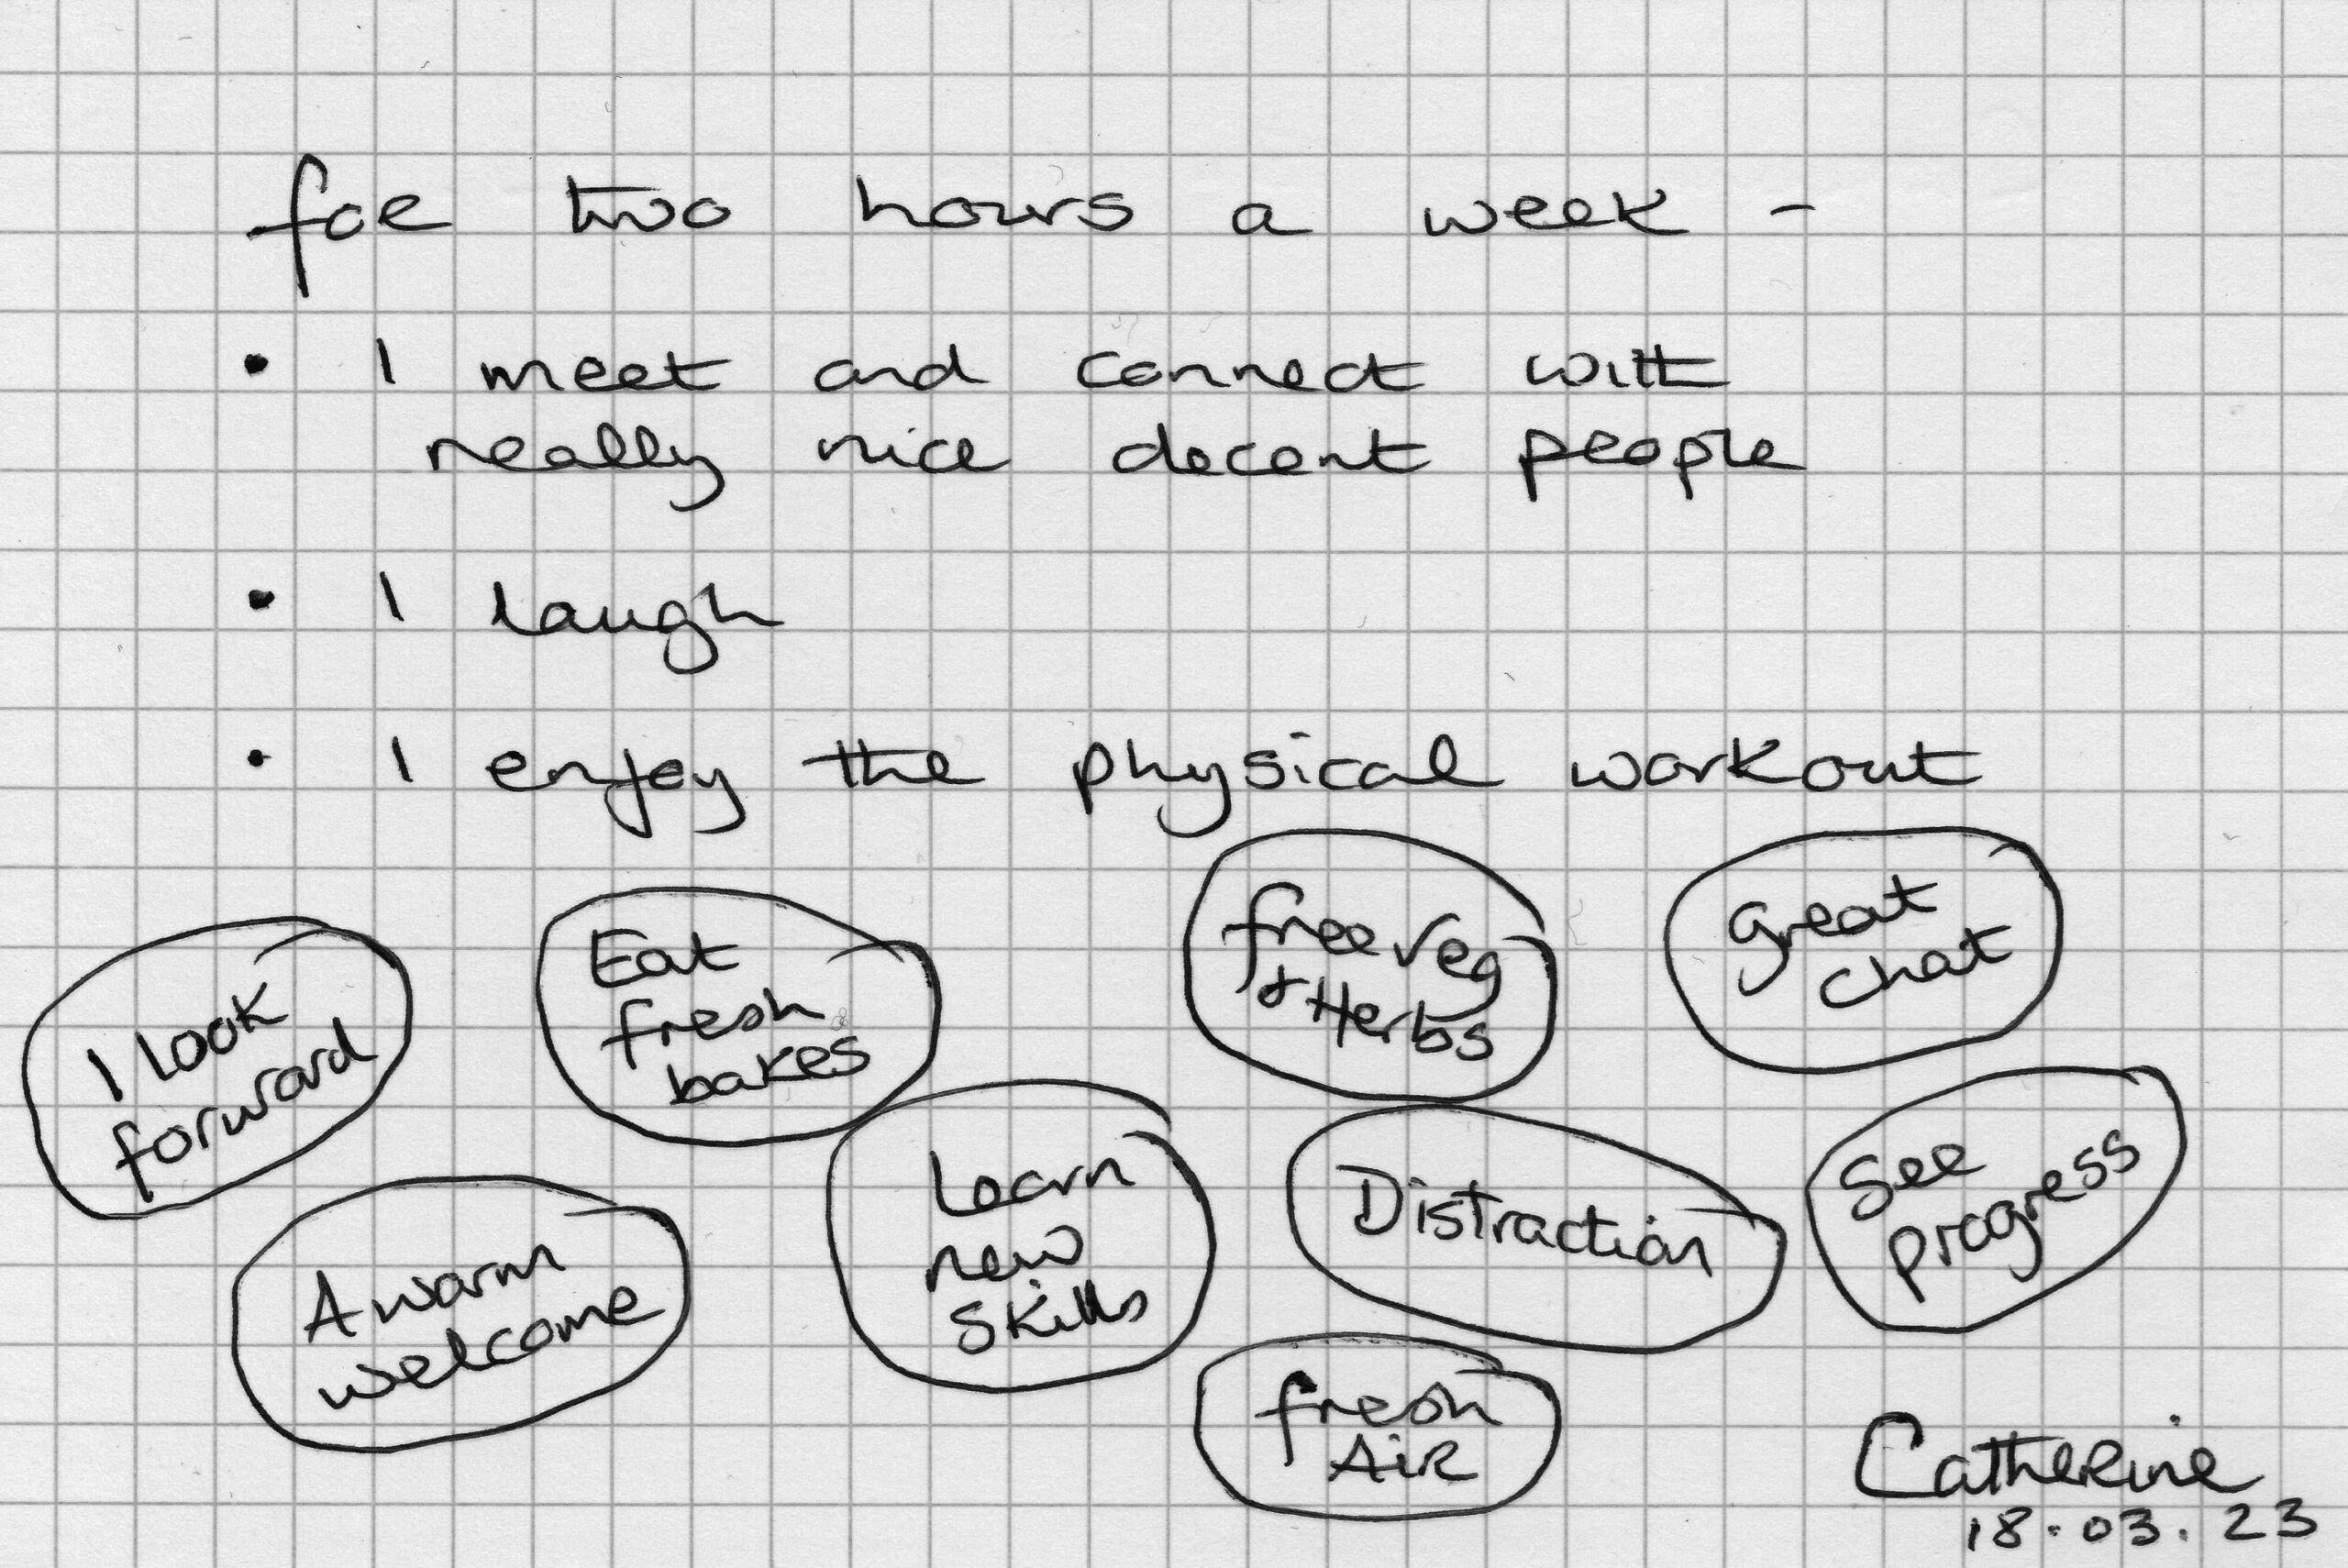 for two hours a week -
• I meet and connect with
really nice decent people
• I laugh
• I enjoy the physical workout
I look
forward
Eat
fresh
bakes
free veg
& Herbs
great
chat
A warm
welcome
Learn
new
skills
Distraction
See
progress
fresh
AiR
Catherine
18.03.23